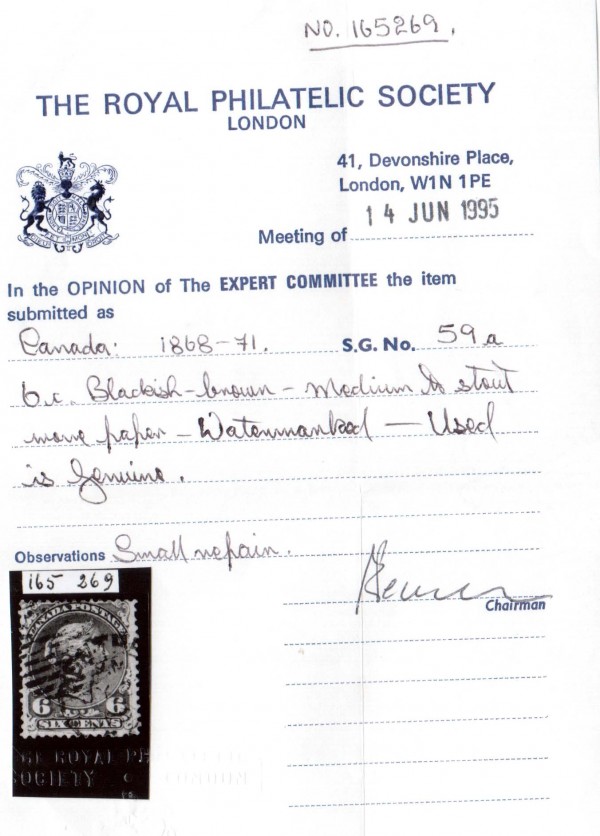 NO. 165269.
THE ROYAL PHILATELIC SOCIETY
LONDON
41, Devonshire Place,
London, W1N 1PE
Meeting of 14 JUN 1995
In the OPINION of The EXPERT COMMITTEE the item
submitted as
Canada: 1868-71. S.G. No. 59a
6c. Blackish-brown - Medium to stout
wove paper - Watermarked - Used
is genuine.
Observations Small repair.
Chairman
165 269
CANADA POSTAGE
6 6
SIX CENTS
THE ROYAL PHILATELIC
SOCIETY LONDON